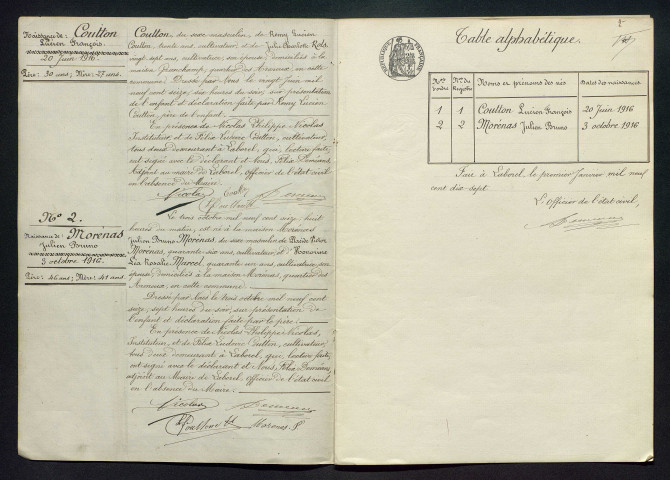 Naissance de: Coutton
Lucien François.
20 Juin 1916.
Père: 30 ans; Mère: 27 ans.
Coutton du sexe masculin, de Remy Lucien
Coutton, trente ans, cultivateur, et de Julie Rols
vingt sept ans, cultivatrice, son épouse, domiciliés à la
maison quartier des Armeaux, en cette
commune. Dressé par Nous le vingt Juin mil
neuf cent seize, dix heures du soir, sur présentation
de l'enfant et déclaration faite par Remy Lucien
Coutton, père de l'enfant.
En présence de Nicolas Philippe Nicolas,
Instituteur, et de Félix Coutton, cultivateur,
tous deux demeurant à Laborel, qui, lecture faite,
ont signé avec le déclarant et Nous, Félix
Adjoint au maire de Laborel, officier de l'état civil
en l'absence du Maire.
Nicolas
N° 2.
Naissance de: Morénas
Julien Bruno
3 octobre 1916.
Père: 46 ans; Mère: 41 ans.
Le trois octobre mil neuf cent seize, huit
heures du matin, est né à la maison Morénas
Julien Bruno Morénas, du sexe masculin, de
Morénas, quarante-six ans, cultivateur, et d'Honorine
Marcel, quarante un ans, cultivatrice, son
épouse, domiciliés à la maison Morénas, quartier des
Armeaux, en cette commune.
Dressé par Nous le trois octobre mil neuf cent
seize, sept heures du soir, sur présentation de
l'enfant et déclaration faite par le père.
En présence de Nicolas Philippe Nicolas,
Instituteur, et de Félix Coutton, cultivateur,
tous deux demeurant à Laborel, qui, lecture faite,
ont signé avec le déclarant et Nous, Félix
adjoint au Maire de Laborel, officier de l'état civil
en l'absence du Maire.
Nicolas
Morenas P
Table alphabétique.
Nos d'ordre
Nos du Registre
Noms et prénoms des nés
Dates des naissances
1 1 Coutton Lucien François 20 Juin 1916
2 2 Morénas Julien Bruno 3 octobre 1916
Fait à Laborel, le premier Janvier mil neuf
cent dix-sept.
L'Officier de l'état civil,